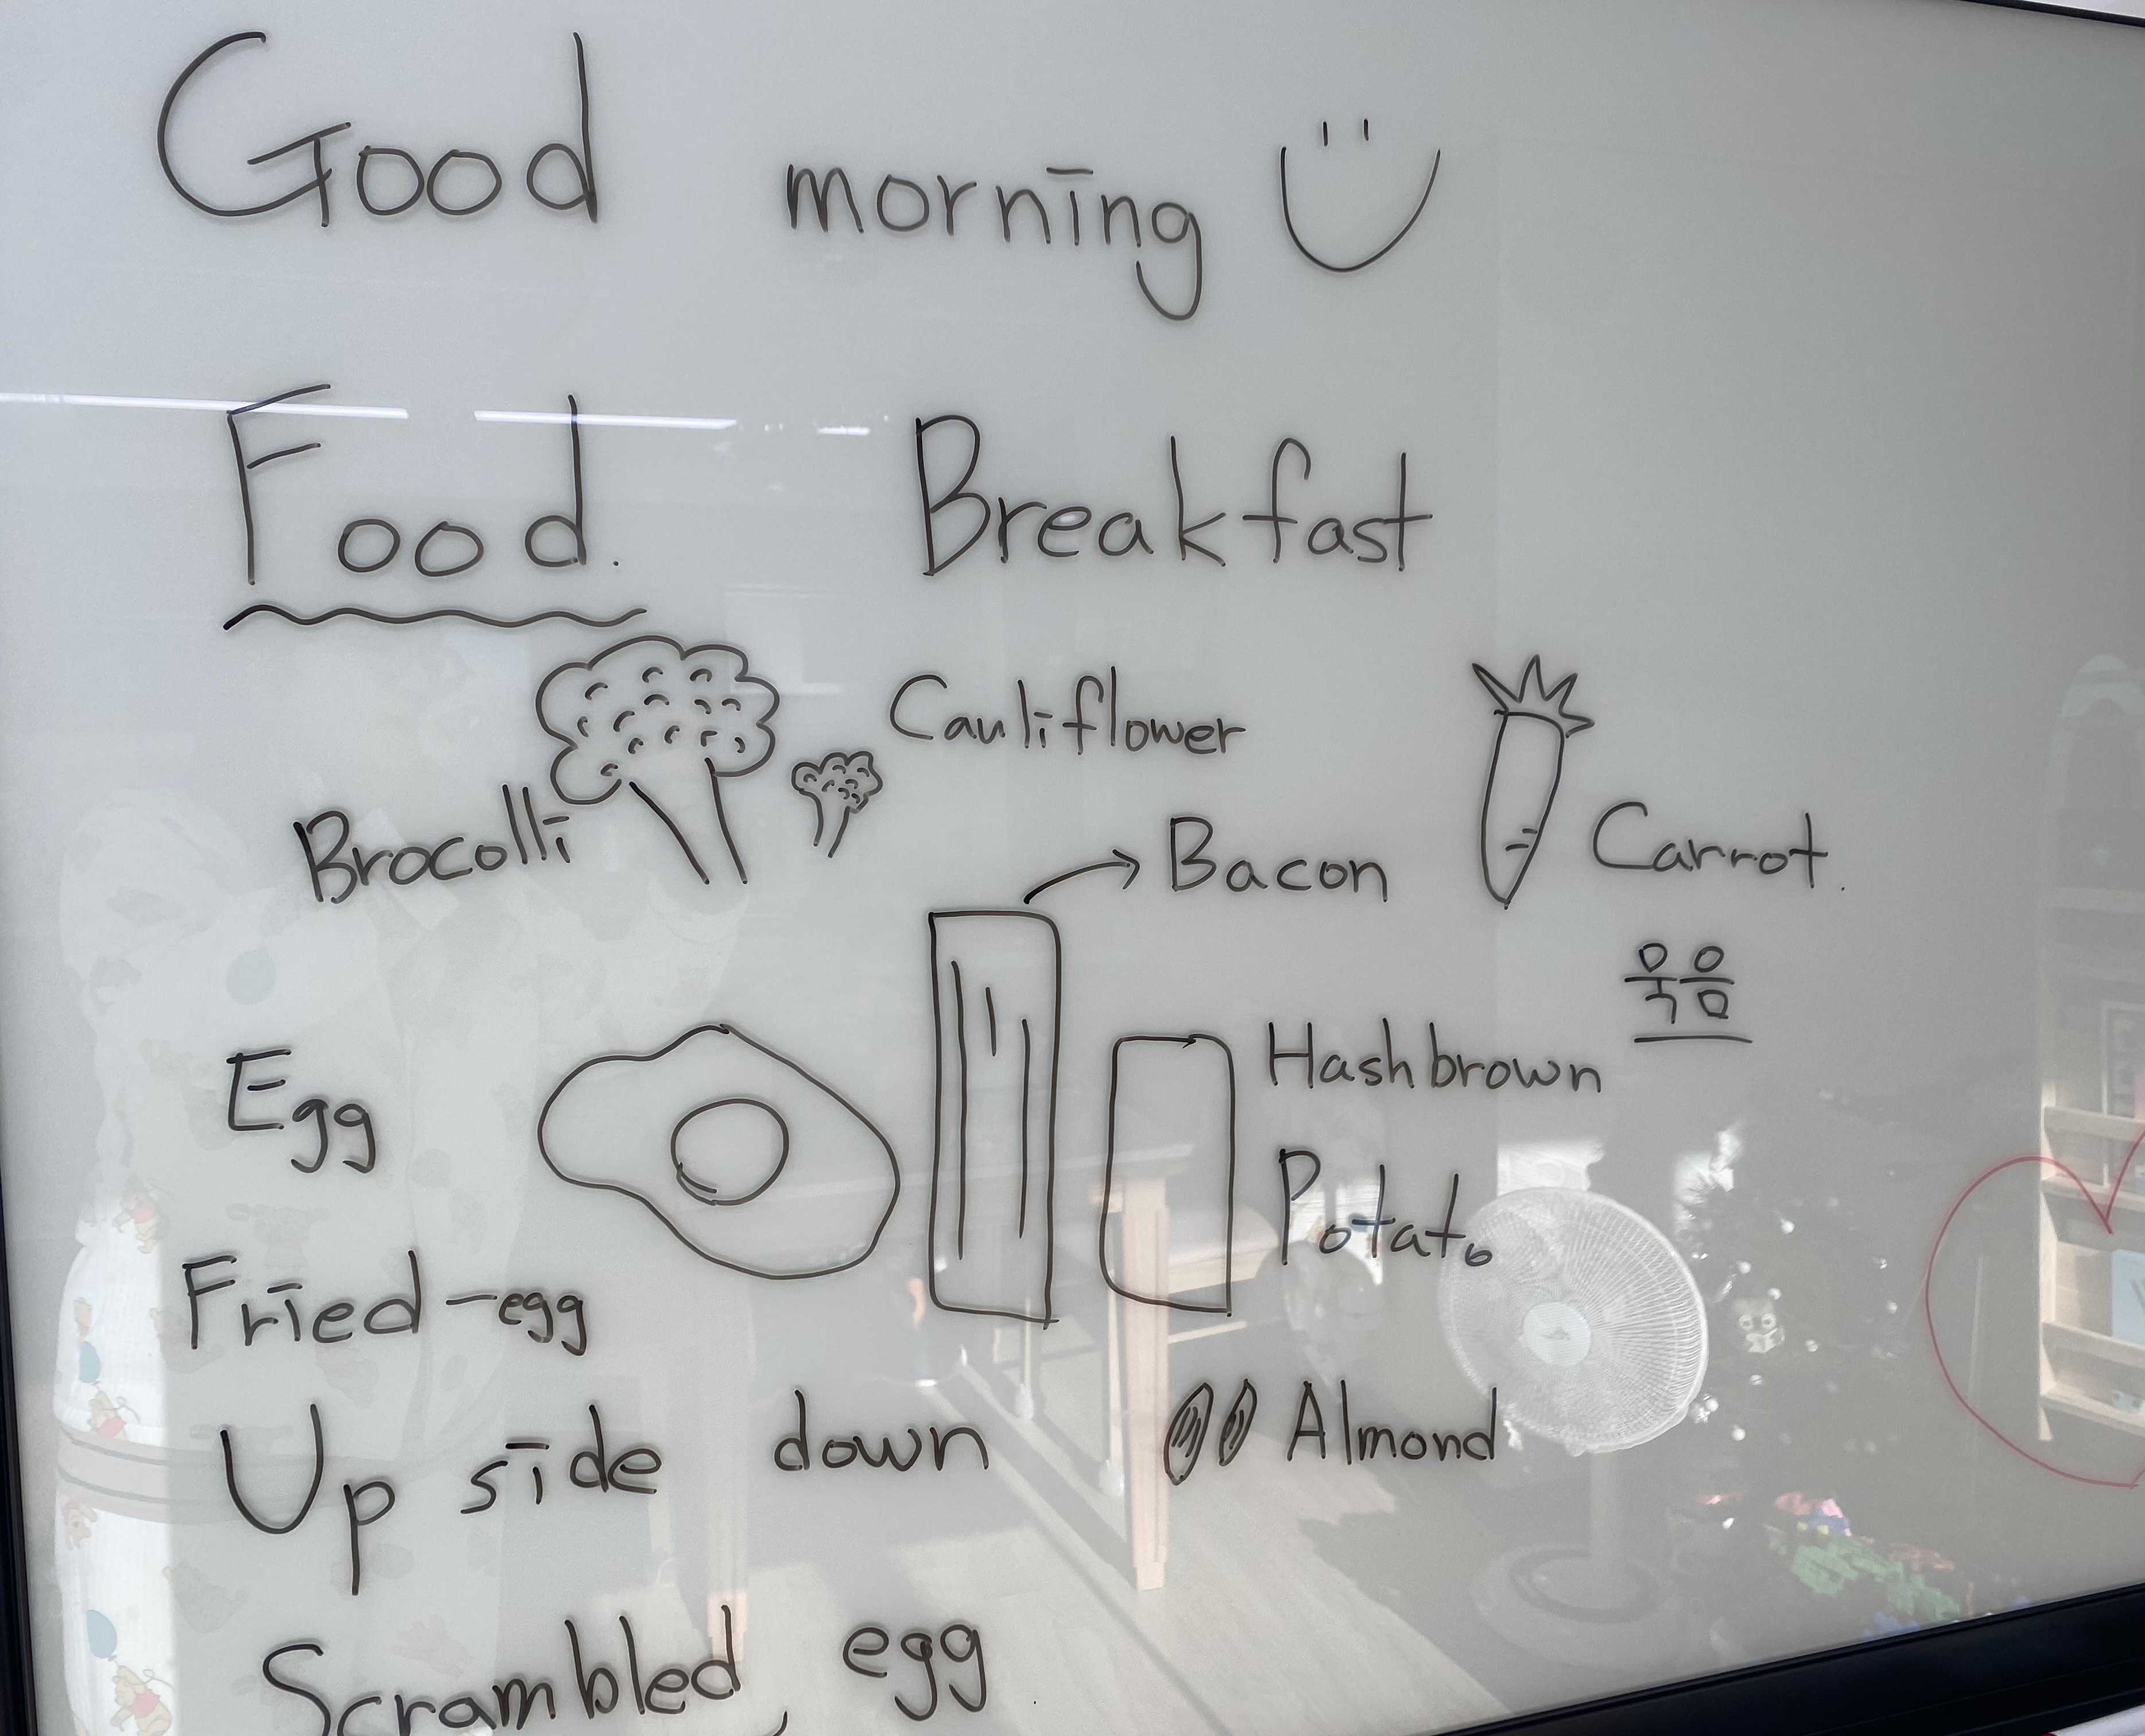 Good morning
Food. Breakfast
Cauliflower
Brocolli
Bacon
Carrot.
욱음
Egg
Hashbrown
Potato
Fried-egg
Up side down
Almond
Scrambled egg